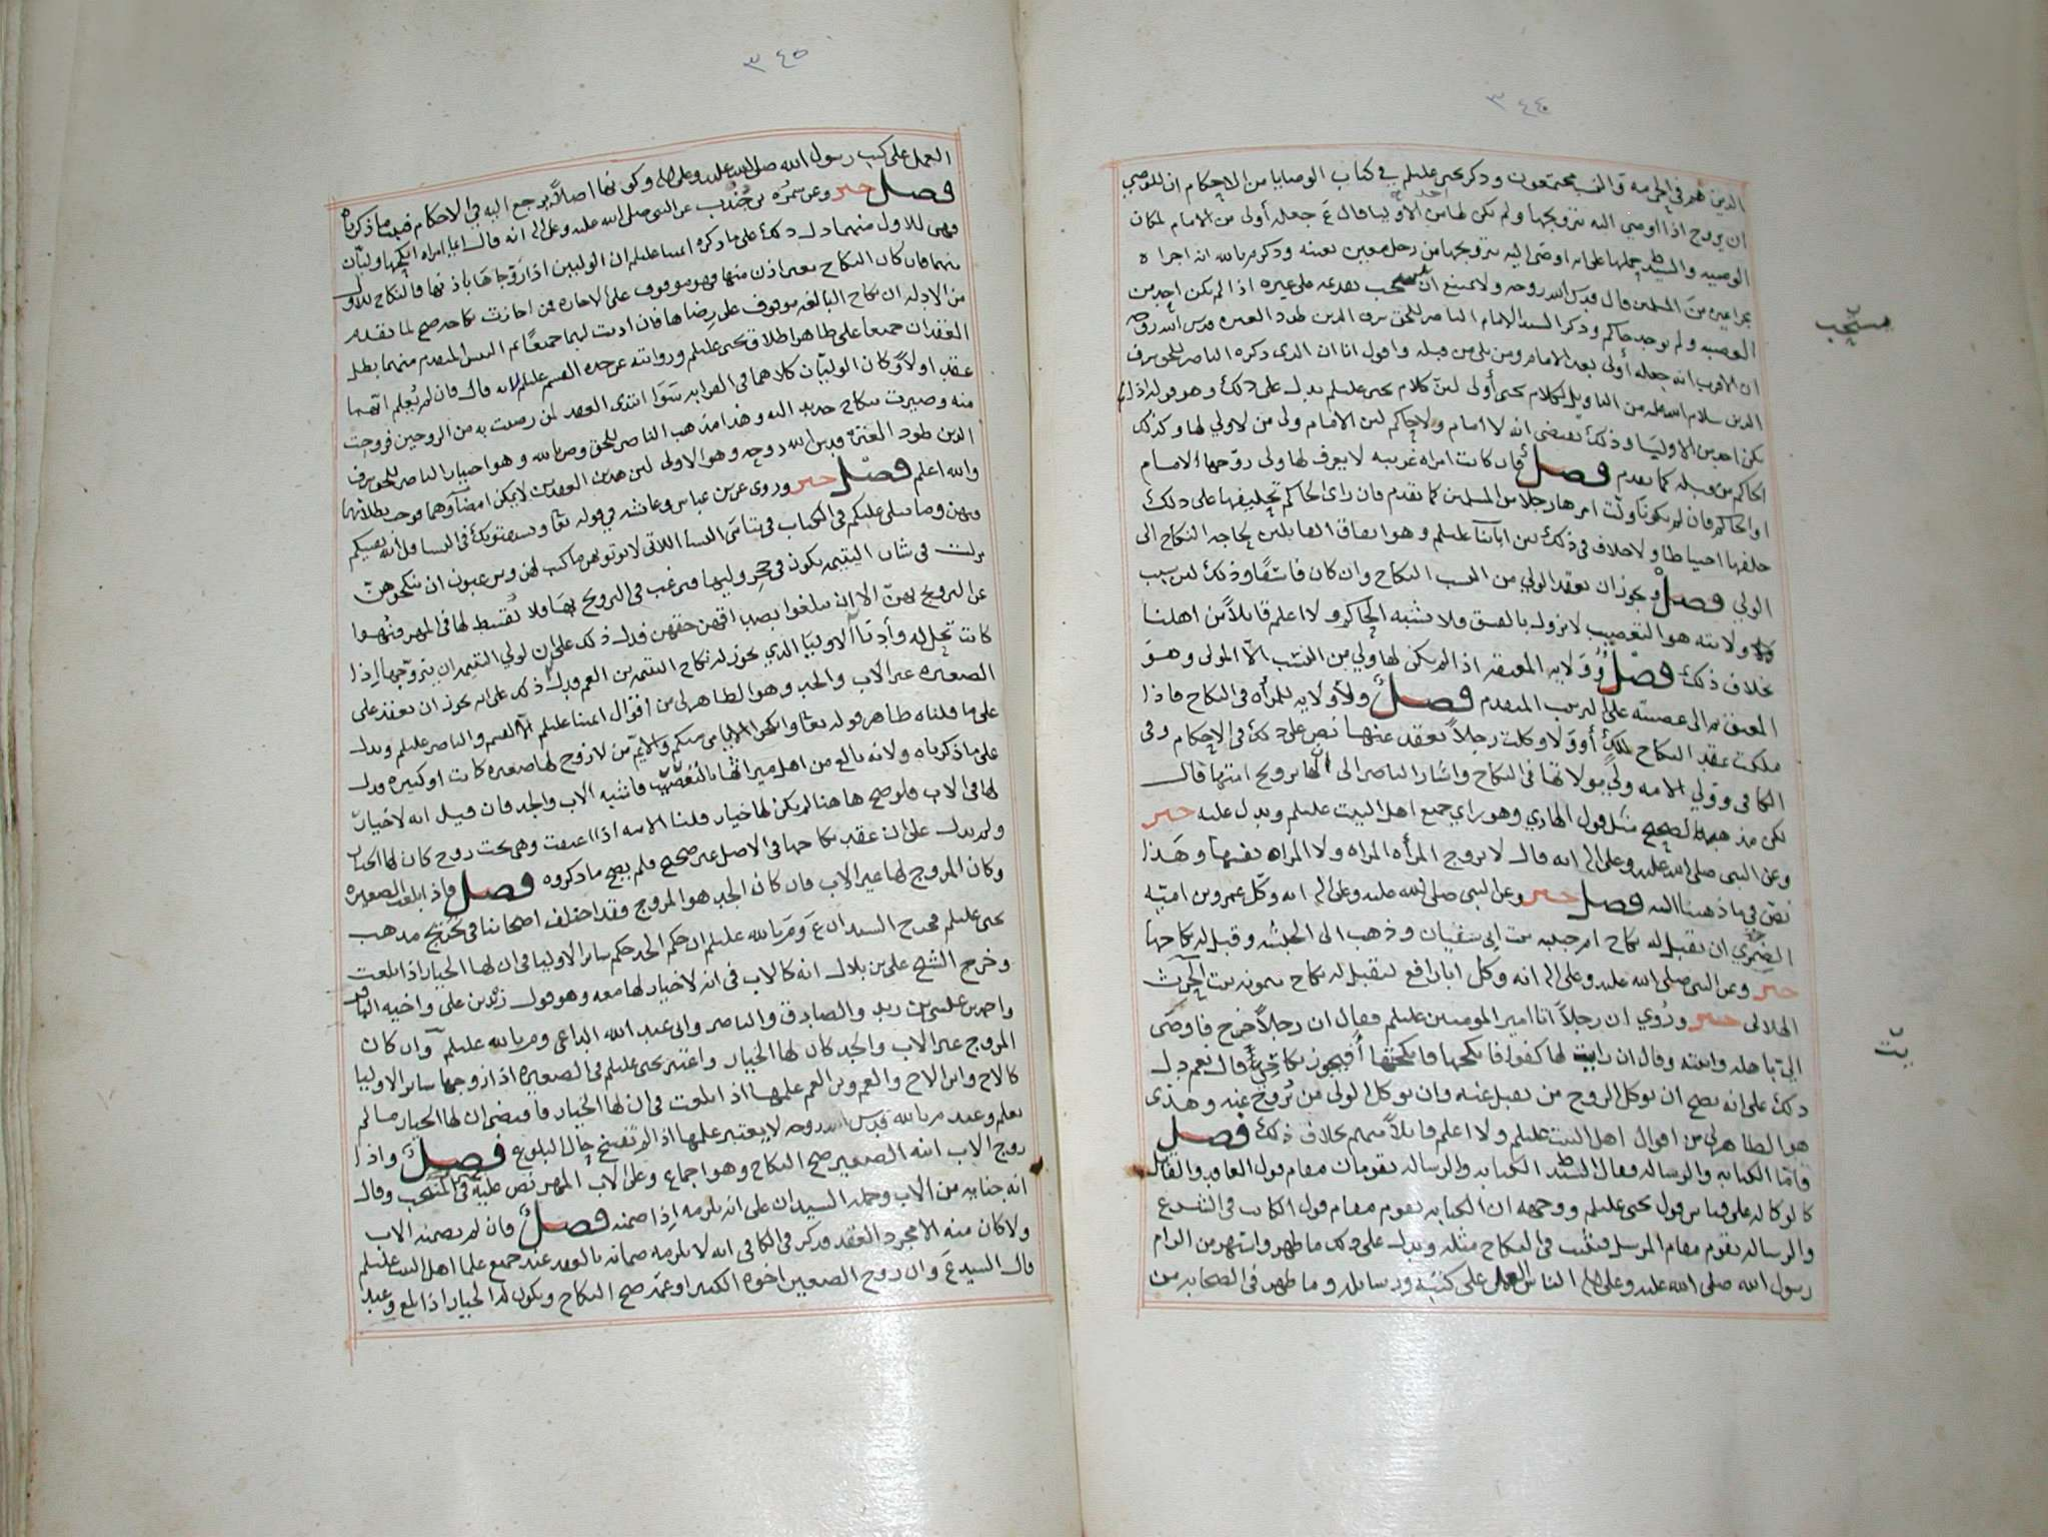 ٣٤٤
الذين هم في الحرمة والنسب مجتمعون وذكر يحيى عليلم في كتاب الوصايا من الاحكام ان للوصي
ان يزوج اذا اوصي اليه بتزويجها ولم يكن لها من الاوليا احد قال ع جعله أولى من الامام لمكان
الوصيه والسيد ط حملها على انه اوصى اليه بتزويجها من رجل معين بعينه وذكر م بالله انه اجراه
مجرا غيره من المسلمين قال قدس الله روحه ولا يمتنع ان يستحب تقديمه على غيره اذا لم يكن احد من
العصبه ولم يوجد حاكم وذكر السيد الامام الناصر للحق شرف الدين طود العتره قدس الله روحه
ان الاقرب انه جعله أولى بعد الامام ومن يلي من قبله واقول انا ان الذي ذكره الناصر للحق شرف
الدين سلام الله عليه من التاويل لكلام يحيى أولى لان كلام يحيى عليلم يدل على ذلك وهو قوله اذا لم
يكن احد من الاوليا وذلك يقتضي انه لا امام ولا حاكم لان الامام ولي من لا ولي لها وكذلك
الحاكم من قبله كما تقدم فصل فان كانت امراه غريبه لا يعرف لها ولي زوجها الامام
او الحاكم فان لم يكونا ولّت امرها رجلا من المسلمين كما تقدم فان راى الحاكم تحليفها على ذلك
حلفها احتياطا ولا خلاف في ذلك بين ائمتنا عليلم وهو اتفاق القايلين بحاجه النكاح الى
الولي فصل ويجوز ان يعقد الولي من النسب النكاح وان كان فاسقا وذلك لان سبب
ولايته هو التعصيب لا يزول بالفسق فلا يشبه الحاكم ولا اعلم قائلا من اهلنا
بخلاف ذلك فصل وولايه المعتقه اذا لم يكن لها ولي من النسب الا المولى وهو
المعتق ثم الى عصبته على الترتيب المتقدم فصل ولا ولايه للمرأه في النكاح فاذا
ملكت عقد النكاح بملك أو ولا وكلت رجلا يعقد عنها نص على ذلك في الاحكام وفي
الكافي وولي الامه ولي مولاتها في النكاح واشار الناصر الى ان لها تزويج امتها قال
لكن مذهبه الصحيح مثل قول الهادي وهو راي جميع اهل البيت عليلم ويدل عليه خبر
وعن النبي صلى الله عليه وعلى اله انه قال لا تزوج المرأه المراه ولا المراه نفسها وهذا
نص في ما ذهبنا اليه فصل خبر وعن النبي صلى الله عليه وعلى اله انه وكل عمرو بن اميه
الضمري ان يقبل له نكاح ام حبيبه بنت ابي سفيان وذهب الى الحبشه وقبل له نكاحها
خبر وعن النبي صلى الله عليه وعلى اله انه وكل ابا رافع ليقبل له نكاح ميمونه بنت الحرث
الهلالي خبر ورُوي ان رجلا اتا امير المومنين عليلم فقال ان رجلا خرج فاوصى
اليّ باهله وابنته وقال ان رايت لها كفوا فانكحها فانكحتها أفيجوز نكاحي قال نعم دل
ذلك على انه يصح ان يوكل الزوج من يقبل عنه وان يوكل الولي من يُزوج عنه وهذى
هو الظاهر لي من اقوال اهل البيت عليلم ولا اعلم قائلا منهم بخلاف ذلك فصل
فامّا الكتابه والرساله فقال السيد ط الكتابه والرساله يقومان مقام قول العاقد والقابل
كالوكاله على قياس قول يحيى عليلم ووجهه ان الكتابه يقوم مقام قول الكاتب في الشرع
والرساله يقوم مقام المرسل فيثبت في النكاح مثله ويدل على ذلك ما ظهر واشتهر من الزام
رسول الله صلى الله عليه وعلى اله الناس العمل على كتبه ورسايله وما ظهر في الصحابه من
مستحب
بت
٣٤٥
العمل على كتب رسول الله صلى الله عليه وعلى اله وكونها اصلا يرجع اليه في الاحكام فثبت ما ذكرناه
فصل خبر وعن سمره بن جُندب عن النبي صلى الله عليه وعلى اله انه قال ايما امراه انكحها وليّان
فهي للاول منهما دل ذلك على ما ذكره ائمتنا عليلم ان الوليين اذا زوجاها باذنها فالنكاح للاول
منهما فان كان النكاح بغير اذن منها فهو موقوف على الاجازه فمن اجازت نكاحه صح لما تقدم
من الادله ان نكاح البالغه موقوف على رضاها فان اذنت لهما جميعًا ثم التبس المتقدم منهما بطل
العقدان جميعا على ظاهر اطلاق يحيى عليلم وروايته عن جده القسم عليلم لانه قال فان لم يُعلم ايهما
عقد اولا وكان الوليّان كلاهما في القرابه سوا ابتدى العقد لمن رضيت به من الزوجين فزوجت
منه وصيرت بنكاح جديد اليه وهذا مذهب الناصر للحق وم بالله وهو اختيار الناصر للحق شرف
الدين طود العترة قدس الله روحه وهو الاولى لان هذين العقدين لا يمكن امضاؤهما فوجب بطلانهما
والله اعلم فصل خبر وروي عن بن عباس وعائشه في قوله تعا ويستفتونك في النسا قل الله يفتيكم
فيهن وما يتلى عليكم في الكتاب في يتامى النسا اللاتي لا توتونهن ما كتب لهن وترغبون ان تنكحوهنّ
نزلت في شان اليتيمه يكون في حجر وليها فيرغب في التزويج بها ولا يُقسط لها في المهر فنُهوا
عن التزويج بهنّ الا ان يبلغوا بصداقهن حقهن فدل ذلك على ان لولي اليتيمه ان يتزوجها اذا
كانت تحل له وأدنا الاوليا الذي يجوز له نكاح اليتيمه بن العم ويدل ذلك على انه يجوز ان يعقد على
الصغيره غير الاب والجد وهو الظاهر لي من أقوال ائمتنا عليلم القسم والناصر عليلم ويدل
على ما قلناه ظاهر قوله تعا وانكحوا الايامى منكم والايّم من لا زوج لها صغيره كانت او كبيره فدل
على ما ذكرناه ولانه بالغ من اهل ميراثها بالتعصيب فاشبه الاب والجد فان قيل انه لا خيار
لها في الاب فلو صح هاهنا لم يكن لها خيار قلنا الامه اذا اعتقت وهي تحت زوج كان لها الخيار
ولم يدل على ان عقد نكاحها في الاصل غير صحيح فلم يصح ما ذكروه فصل فاذا بلغت الصغيره
وكان المزوج لها غير الاب فان كان الجد هو المزوج فقد اختلف اصحابنا في تخريج مذهب
يحيى عليلم فخرج السيدان ع وم بالله عليلم ان حكم الجد حكم ساير الاوليا في ان لها الخيار اذا بلغت
وخرج الشيخ علي بن بلال انه كالاب في انه لا خيار لها معه وهو قول زيد بن علي واخيه الباقر
واحمد بن عيسى بن زيد والصادق والناصر وابي عبد الله الداعي وم بالله عليلم وان كان
المزوج غير الاب والجد كان لها الخيار واعتبر يحيى عليلم في الصغيره اذا زوجها ساير الاوليا
كالاخ وابن الاخ والعم وبن العم علمها اذا بلغت في ان لها الخيار فاقتضى ان لها الخيار ما لم
تعلم وعند م بالله قدس الله روحه لا يعتبر علمها اذا لم تفسخ حال البلوغ فصل واذا
زوج الاب ابنه الصغير صح النكاح وهو اجماع وعلى الاب المهر نص عليه في المنتخب وقال
انه جنايه من الاب وحمله السيدان على انه يلزمه اذا ضمنه فصل فان لم يضمنه الاب
ولا كان منه الا مجرد العقد فذكر في الكافي انه لا يلزمه ضمانه بالعقد عند جميع علما اهل البيت عليلم
قال السيد ع وان زوج الصغير اخوه الكبير او عمه صح النكاح ويكون له الخيار اذا بلغ وعند